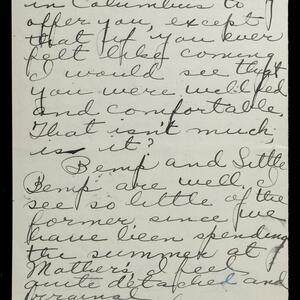 in Columbus to
offer you, except
that if you ever
felt like coming
I would see that
you were well fed
and comfortable.
That isn't much,
is it?
Bemp and Little
Bemp are well. I
see so little of the
former since we
have been spending
the summer at
Mother's, I feel
quite detached and